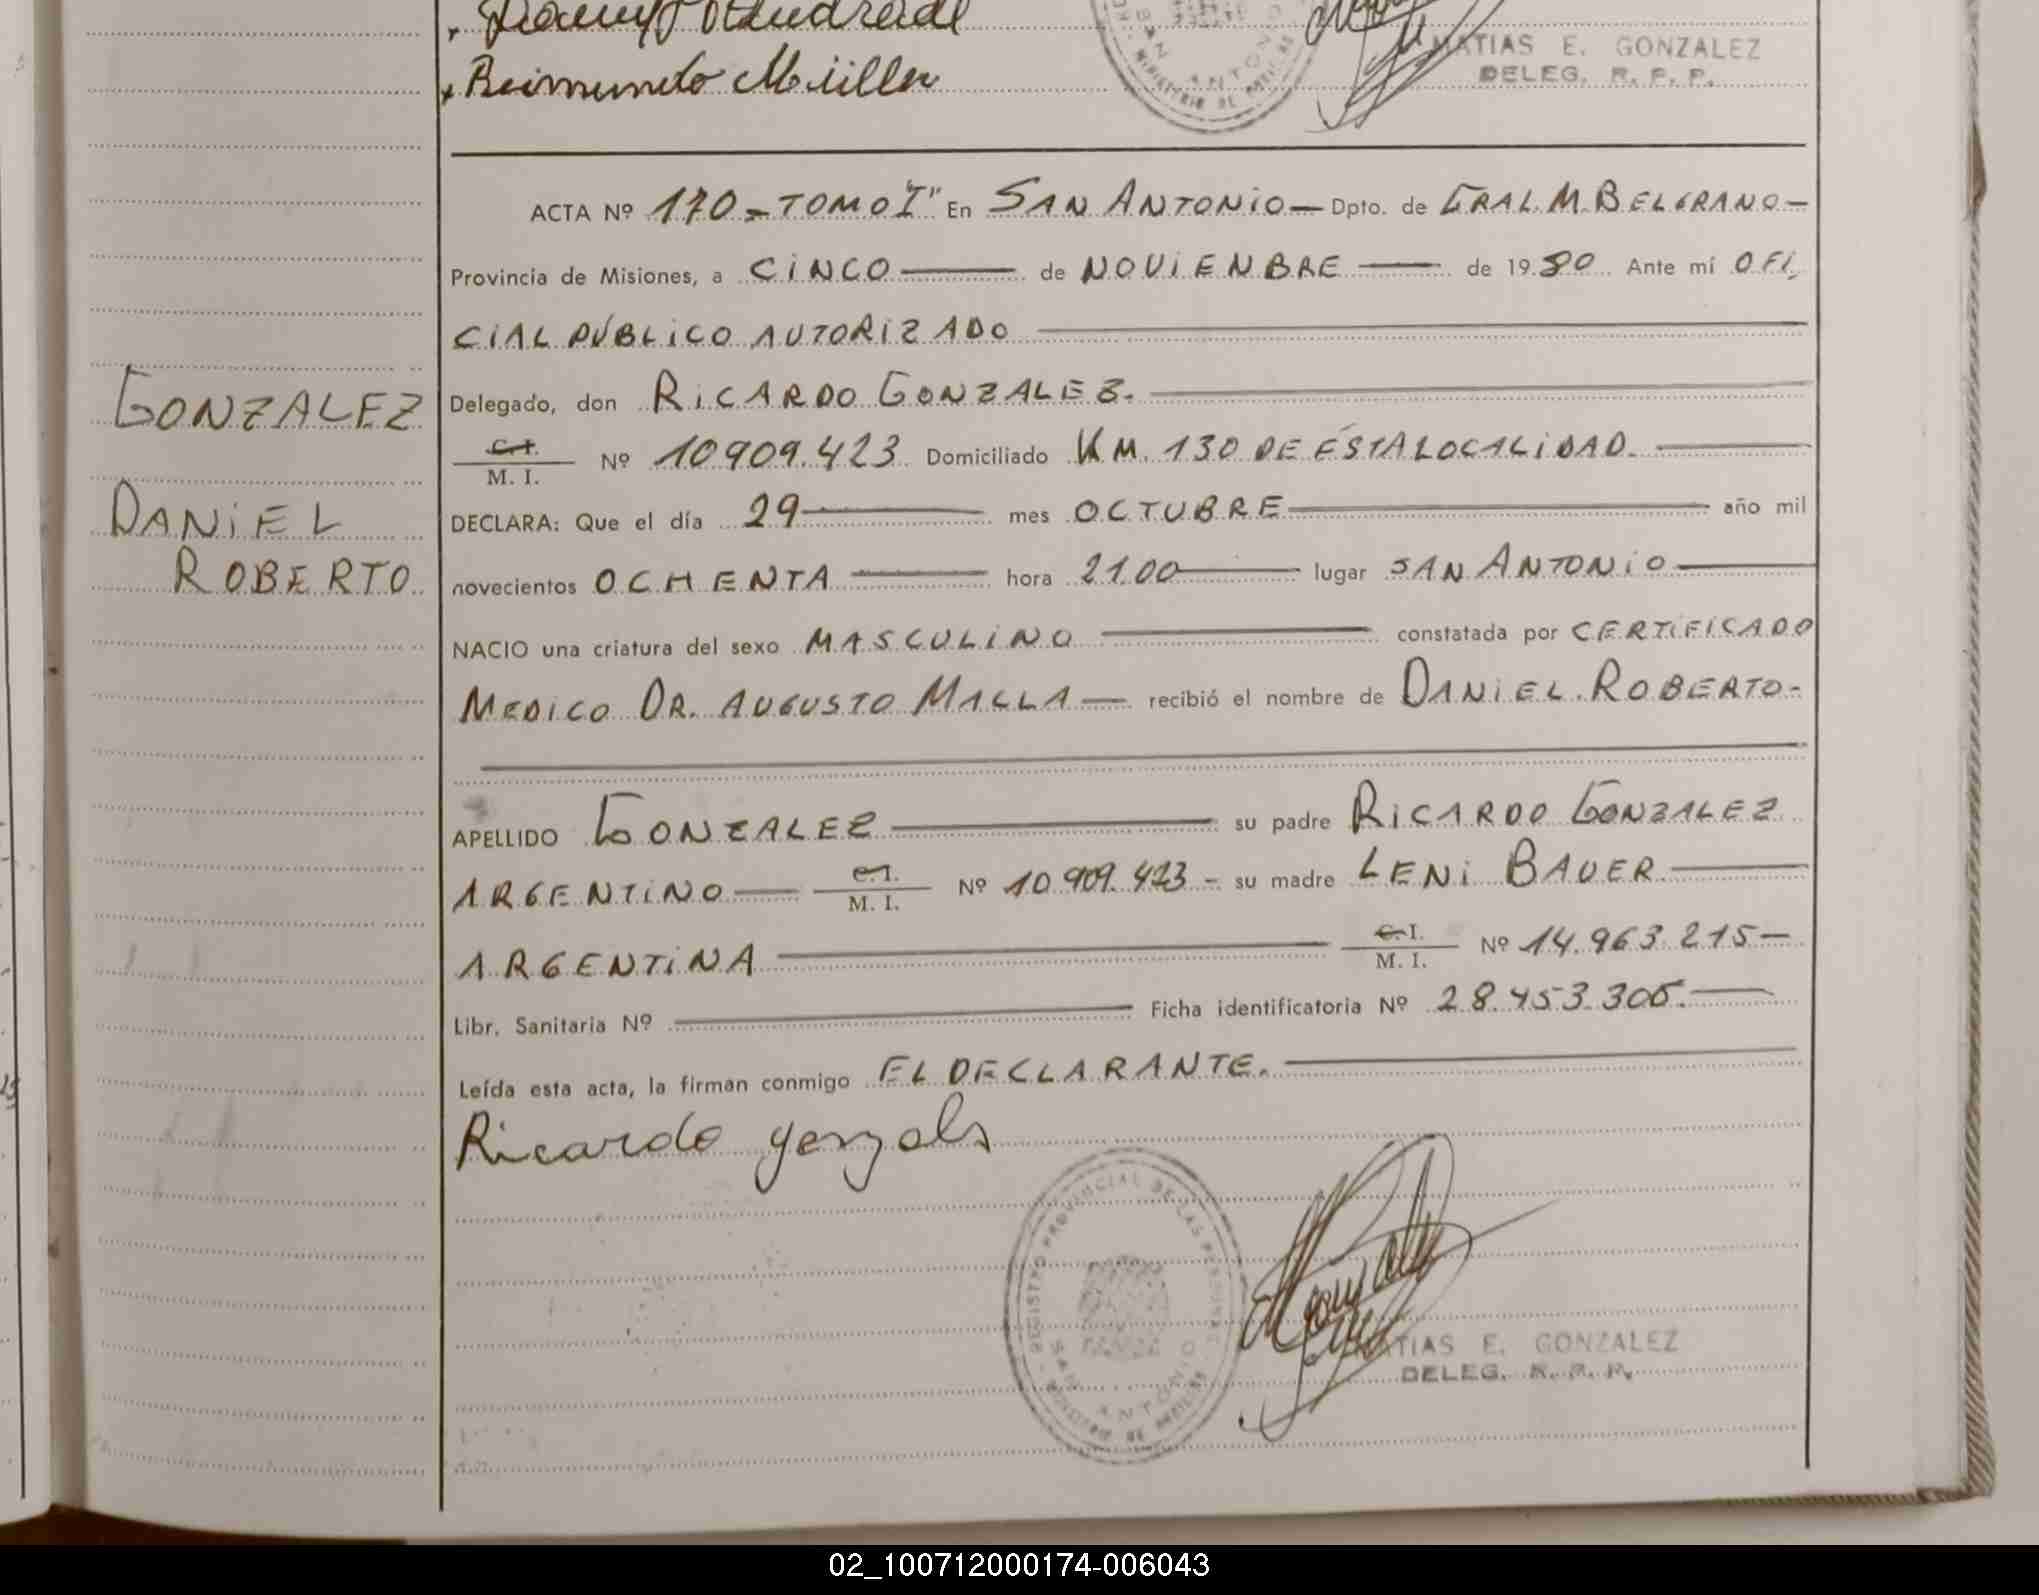 Raimundo Müller
MATIAS E. GONZALEZ
DELEG. R. P. P.
ACTA Nº 170 - TOMO "I" En SAN ANTONIO - Dpto. de GRAL. M. BELGRANO -
Provincia de Misiones, a CINCO de NOVIENBRE de 1980 Ante mí OFI,
CIAL PÚBLICO AUTORIZADO
GONZALEZ
Delegado, don RICARDO GONZALEZ.
C.I.
M. I. Nº 10.909.423 Domiciliado KM. 130 DE ESTA LOCALIDAD.
DANIEL
DECLARA: Que el día 29 mes OCTUBRE año mil
ROBERTO
novecientos OCHENTA hora 21.00 lugar SAN ANTONIO
NACIO una criatura del sexo MASCULINO constatada por CERTIFICADO
MEDICO DR. AUGUSTO MALLA - recibió el nombre de DANIEL ROBERTO-
APELLIDO GONZALEZ su padre RICARDO GONZALEZ
ARGENTINO C.I. M. I. Nº 10.909.423 - su madre LENI BAUER
ARGENTINA C.I. M. I. Nº 14.963.215-
Libr. Sanitaria Nº Ficha identificatoria Nº 28.453.305.
Leída esta acta, la firman conmigo EL DECLARANTE.
Ricardo
REGISTRO PROVINCIAL DE LAS PERSONAS
SAN ANTONIO
MATIAS E. GONZALEZ
DELEG. R. P. P.
02_100712000174-006043